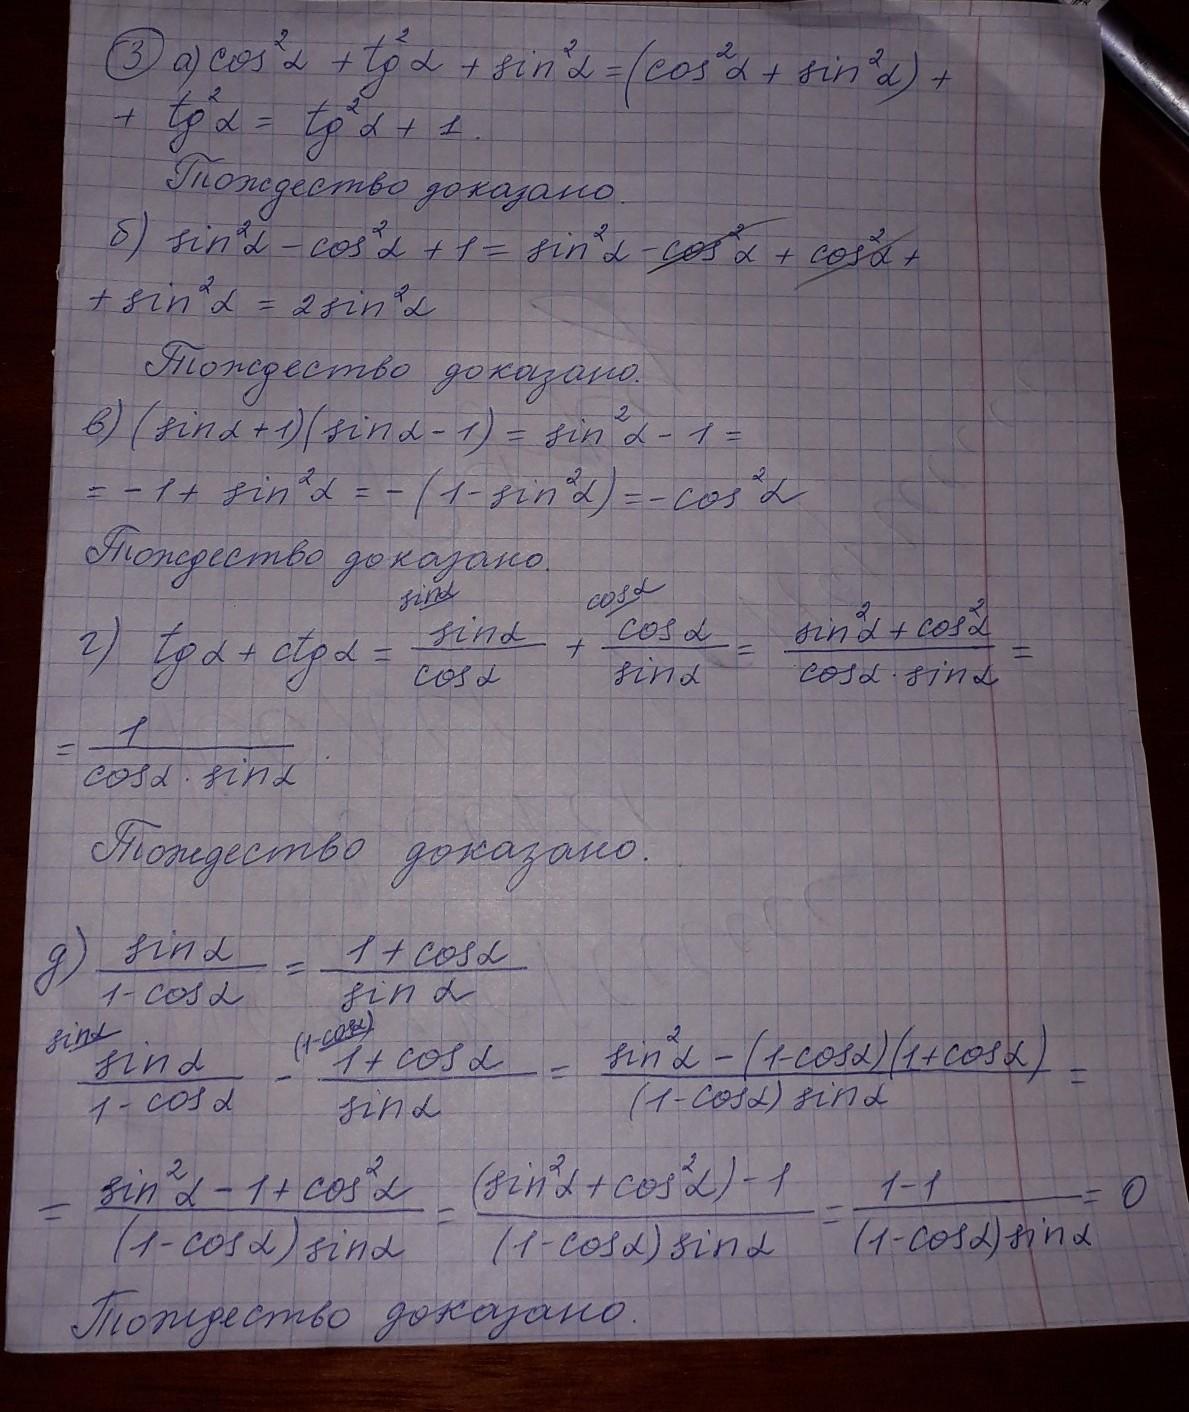 ③ а) cos²α + tg²α + sin²α = (cos²α + sin²α) +
+ tg²α = tg²α + 1.
Тождество доказано.
б) sin²α - cos²α + 1 = sin²α - cos²α + cos²α +
+ sin²α = 2sin²α
Тождество доказано.
в) (sinα + 1)(sinα - 1) = sin²α - 1 =
= -1 + sin²α = -(1 - sin²α) = -cos²α
Тождество доказано.
г) tgα + ctgα = ^{sinα} sinα/cosα + ^{cosα} cosα/sinα = (sin²α + cos²α)/(cosα · sinα) =
= 1/(cosα · sinα).
Тождество доказано.
д) sinα/(1 - cosα) = (1 + cosα)/sinα
^{sinα} sinα/(1 - cosα) - ^{(1-cosα)} (1 + cosα)/sinα = (sin²α - (1 - cosα)(1 + cosα))/((1 - cosα) sinα) =
= (sin²α - 1 + cos²α)/((1 - cosα) sinα) = ((sin²α + cos²α) - 1)/((1 - cosα) sinα) = (1 - 1)/((1 - cosα) sinα) = 0
Тождество доказано.